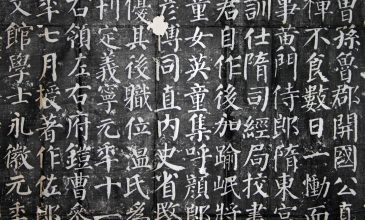 曾孫魯郡開國公真
不食數日一慟而
事黃門侍郎隋東宮
訓仕隋司經局校書
君自作後加踰岷將
童女英童集呼顏郎
彥博同直內史省愍
優其後職位溫氏為
刊定義寧元年十一
右領左右府鎧曹參
年七月授著作佐郎
文館學士永徽元年